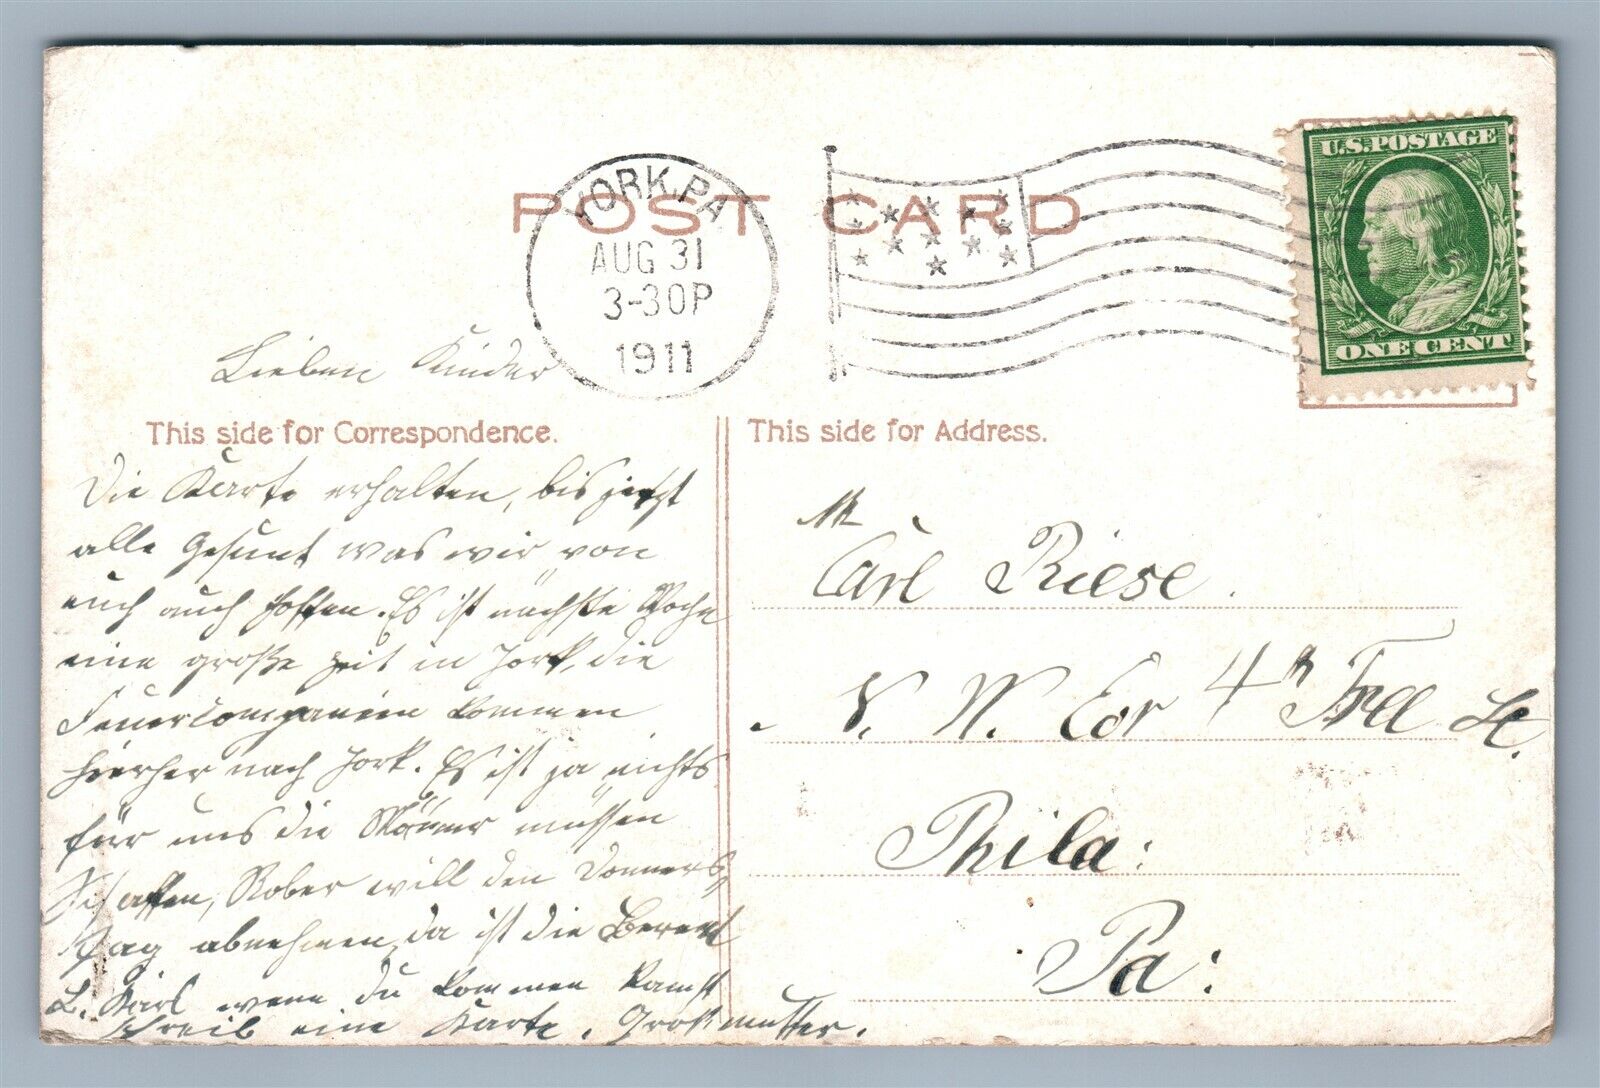 POST CARD
YORK, PA
AUG 31
3-30P
1911
U.S. POSTAGE
ONE CENT
Lieben Kinder
This side for Correspondence.
This side for Address.
Die Karte erhalten, bis jetzt
alle Gesunt was wir von
euch auch hoffen. Es ist nächste Woche
eine große zeit in York, die
Feuercompanien kommen
hierher nach York. Es ist ja nichts
für uns die Männer müssen
Schaffen, Rober will den Donners
tag abnehmen, da ist die
L. Karl wenn du kommen kanst
schreib eine Karte. Großmutter.
Mr
Carl Riese.
N. W. Cor 4th St.
Phila:
Pa: